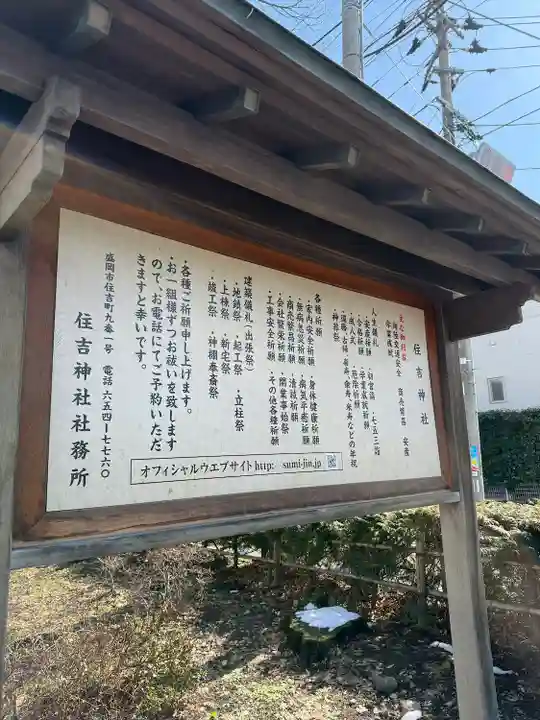 住吉神社
主な御利益
海陸交通安全 商売繁昌 安産
学業成就
人生儀礼 ・初宮詣 ・七五三詣
・安産祈願 ・学業成就祈願
・合格祈願 ・厄除祈願
・成人式
・還暦・古稀・喜寿・傘寿・米寿などの年祝
・神葬祭
各種祈願 ・身体健康祈願
・家内安全祈願 ・病気平癒祈願
・無病息災祈願 ・清祓祈願
・商売繁昌祈願 ・開業奉始祭
・会社繁栄祈願 ・その他各種祈願
・工事安全祈願
建築儀礼(出張祭)
・地鎮祭 ・起工祭 ・立柱祭
・上棟祭 ・新宅祭
・竣工祭 ・神棚奉斎祭
・各種ご祈願申し上げます。
・お一組様ずつお祓いを致します
のでお電話にてご予約いただ
きますと幸いです。
盛岡市住吉町九番一号 電話 六五四ー七七六〇
住吉神社社務所
オフィシャルウエブサイト http: sumi-jin.jp